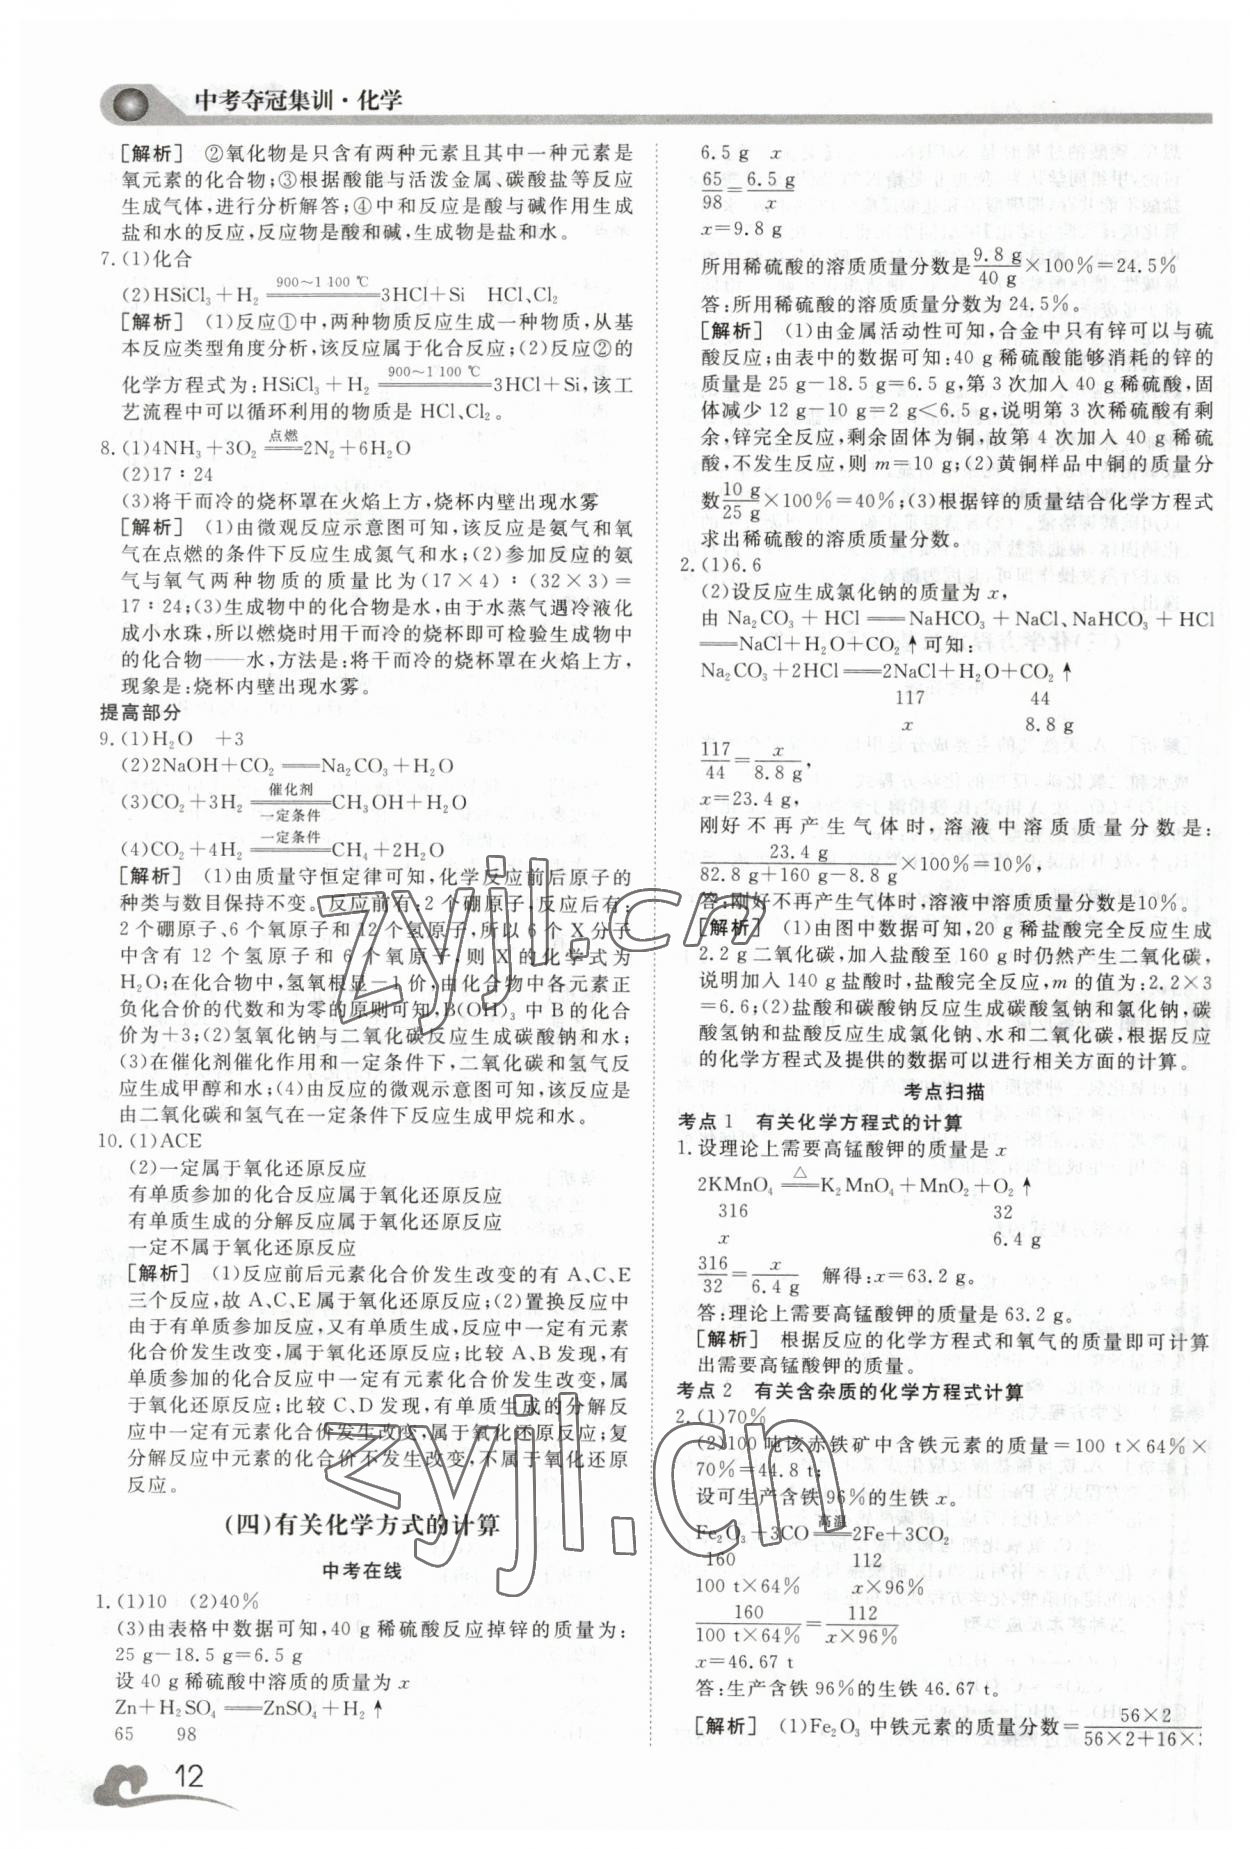 中考夺冠集训·化学
[解析] ②氧化物是只含有两种元素且其中一种元素是
氧元素的化合物;③根据酸能与活泼金属、碳酸盐等反应
生成气体,进行分析解答;④中和反应是酸与碱作用生成
盐和水的反应,反应物是酸和碱,生成物是盐和水。
7. (1)化合
(2)HSiCl₃+H₂ =900~1 100 ℃= 3HCl+Si HCl、Cl₂
[解析] (1)反应①中,两种物质反应生成一种物质,从基
本反应类型角度分析,该反应属于化合反应;(2)反应②的
化学方程式为:HSiCl₃+H₂ =900~1 100 ℃= 3HCl+Si,该工
艺流程中可以循环利用的物质是 HCl、Cl₂。
8. (1)4NH₃+3O₂ =点燃= 2N₂+6H₂O
(2)17∶24
(3)将干而冷的烧杯罩在火焰上方,烧杯内壁出现水雾
[解析] (1)由微观反应示意图可知,该反应是氨气和氧
气在点燃的条件下反应生成氮气和水;(2)参加反应的氨
气与氧气两种物质的质量比为(17×4)∶(32×3)=
17∶24;(3)生成物中的化合物是水,由于水蒸气遇冷液化
成小水珠,所以燃烧时用干而冷的烧杯即可检验生成物中
的化合物——水,方法是:将干而冷的烧杯罩在火焰上方,
现象是:烧杯内壁出现水雾。
提高部分
9. (1)H₂O +3
(2)2NaOH+CO₂ == Na₂CO₃+H₂O
(3)CO₂+3H₂ =催化剂/一定条件= CH₃OH+H₂O
(4)CO₂+4H₂ =一定条件= CH₄+2H₂O
[解析] (1)由质量守恒定律可知,化学反应前后原子的
种类与数目保持不变。反应前有:2 个硼原子,反应后有:
2 个硼原子、6 个氧原子和 12 个氢原子,所以 6 个 X 分子
中含有 12 个氢原子和 6 个氧原子,则 X 的化学式为
H₂O;在化合物中,氢氧根显-1 价,由化合物中各元素正
负化合价的代数和为零的原则可知,B(OH)₃ 中 B 的化合
价为+3;(2)氢氧化钠与二氧化碳反应生成碳酸钠和水;
(3)在催化剂催化作用和一定条件下,二氧化碳和氢气反
应生成甲醇和水;(4)由反应的微观示意图可知,该反应是
由二氧化碳和氢气在一定条件下反应生成甲烷和水。
10. (1)ACE
(2)一定属于氧化还原反应
有单质参加的化合反应属于氧化还原反应
有单质生成的分解反应属于氧化还原反应
一定不属于氧化还原反应
[解析] (1)反应前后元素化合价发生改变的有 A、C、E
三个反应,故 A、C、E 属于氧化还原反应;(2)置换反应中
由于有单质参加反应,又有单质生成,反应中一定有元素
化合价发生改变,属于氧化还原反应;比较 A、B 发现,有
单质参加的化合反应中一定有元素化合价发生改变,属于
氧化还原反应;比较 C、D 发现,有单质生成的分解反
应中一定有元素化合价发生改变,属于氧化还原反应;复
分解反应中元素的化合价不发生改变,不属于氧化还原
反应。
(四)有关化学方式的计算
中考在线
1. (1)10 (2)40%
(3)由表格中数据可知,40 g 稀硫酸反应掉锌的质量为:
25 g-18.5 g=6.5 g
设 40 g 稀硫酸中溶质的质量为 x
Zn+H₂SO₄ == ZnSO₄+H₂↑
65 98
12
6.5 g x
65/98=6.5 g/x
x=9.8 g
所用稀硫酸的溶质质量分数是9.8 g/40 g×100%=24.5%
答:所用稀硫酸的溶质质量分数为 24.5%。
[解析] (1)由金属活动性可知,合金中只有锌可以与硫
酸反应;由表中的数据可知:40 g 稀硫酸能够消耗的锌的
质量是 25 g-18.5 g=6.5 g,第 3 次加入 40 g 稀硫酸,固
体减少 12 g-10 g=2 g<6.5 g,说明第 3 次稀硫酸有剩
余,锌完全反应,剩余固体为铜,故第 4 次加入 40 g 稀硫
酸,不发生反应,则 m=10 g;(2)黄铜样品中铜的质量分
数10 g/25 g×100%=40%;(3)根据锌的质量结合化学方程式
求出稀硫酸的溶质质量分数。
2. (1)6.6
(2)设反应生成氯化钠的质量为 x,
由 Na₂CO₃+HCl == NaHCO₃+NaCl、NaHCO₃+HCl
== NaCl+H₂O+CO₂↑可知:
Na₂CO₃+2HCl == 2NaCl+H₂O+CO₂↑
117 44
x 8.8 g
117/44=x/8.8 g,
x=23.4 g,
刚好不再产生气体时,溶液中溶质质量分数是:
23.4 g/(82.8 g+160 g-8.8 g)×100%=10%,
答:刚好不再产生气体时,溶液中溶质质量分数是10%。
[解析] (1)由图中数据可知,20 g 稀盐酸完全反应生成
2.2 g 二氧化碳,加入盐酸至 160 g 时仍然产生二氧化碳,
说明加入 140 g 盐酸时,盐酸完全反应,m 的值为:2.2×3
=6.6;(2)盐酸和碳酸钠反应生成碳酸氢钠和氯化钠,碳
酸氢钠和盐酸反应生成氯化钠、水和二氧化碳,根据反应
的化学方程式及提供的数据可以进行相关方面的计算。
考点扫描
考点 1 有关化学方程式的计算
1. 设理论上需要高锰酸钾的质量是 x
2KMnO₄ =△= K₂MnO₄+MnO₂+O₂↑
316 32
x 6.4 g
316/32=x/6.4 g 解得:x=63.2 g。
答:理论上需要高锰酸钾的质量是 63.2 g。
[解析] 根据反应的化学方程式和氧气的质量即可计算
出需要高锰酸钾的质量。
考点 2 有关含杂质的化学方程式计算
2. (1)70%
(2)100 吨该赤铁矿中含铁元素的质量=100 t×64%×
70%=44.8 t;
设可生产含铁 96%的生铁 x。
Fe₂O₃+3CO =高温= 2Fe+3CO₂
160 112
100 t×64% x×96%
160/(100 t×64%)=112/(x×96%)
x=46.67 t
答:生产含铁 96%的生铁 46.67 t。
[解析] (1)Fe₂O₃ 中铁元素的质量分数=56×2/(56×2+16×
zyjl.cn
zyjl.cn